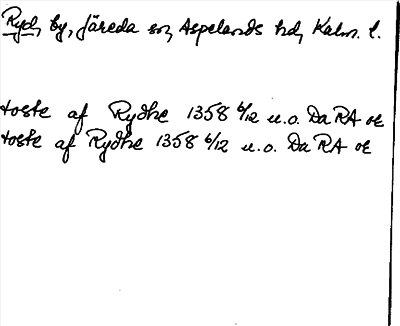 Ryd, by, Järeda sn, Aspelands hd, Kalm. l.
toste af Rydhe 1358 6/12 u.o. Da RA or
toste af Rydhe 1358 6/12 u.o. Da RA or